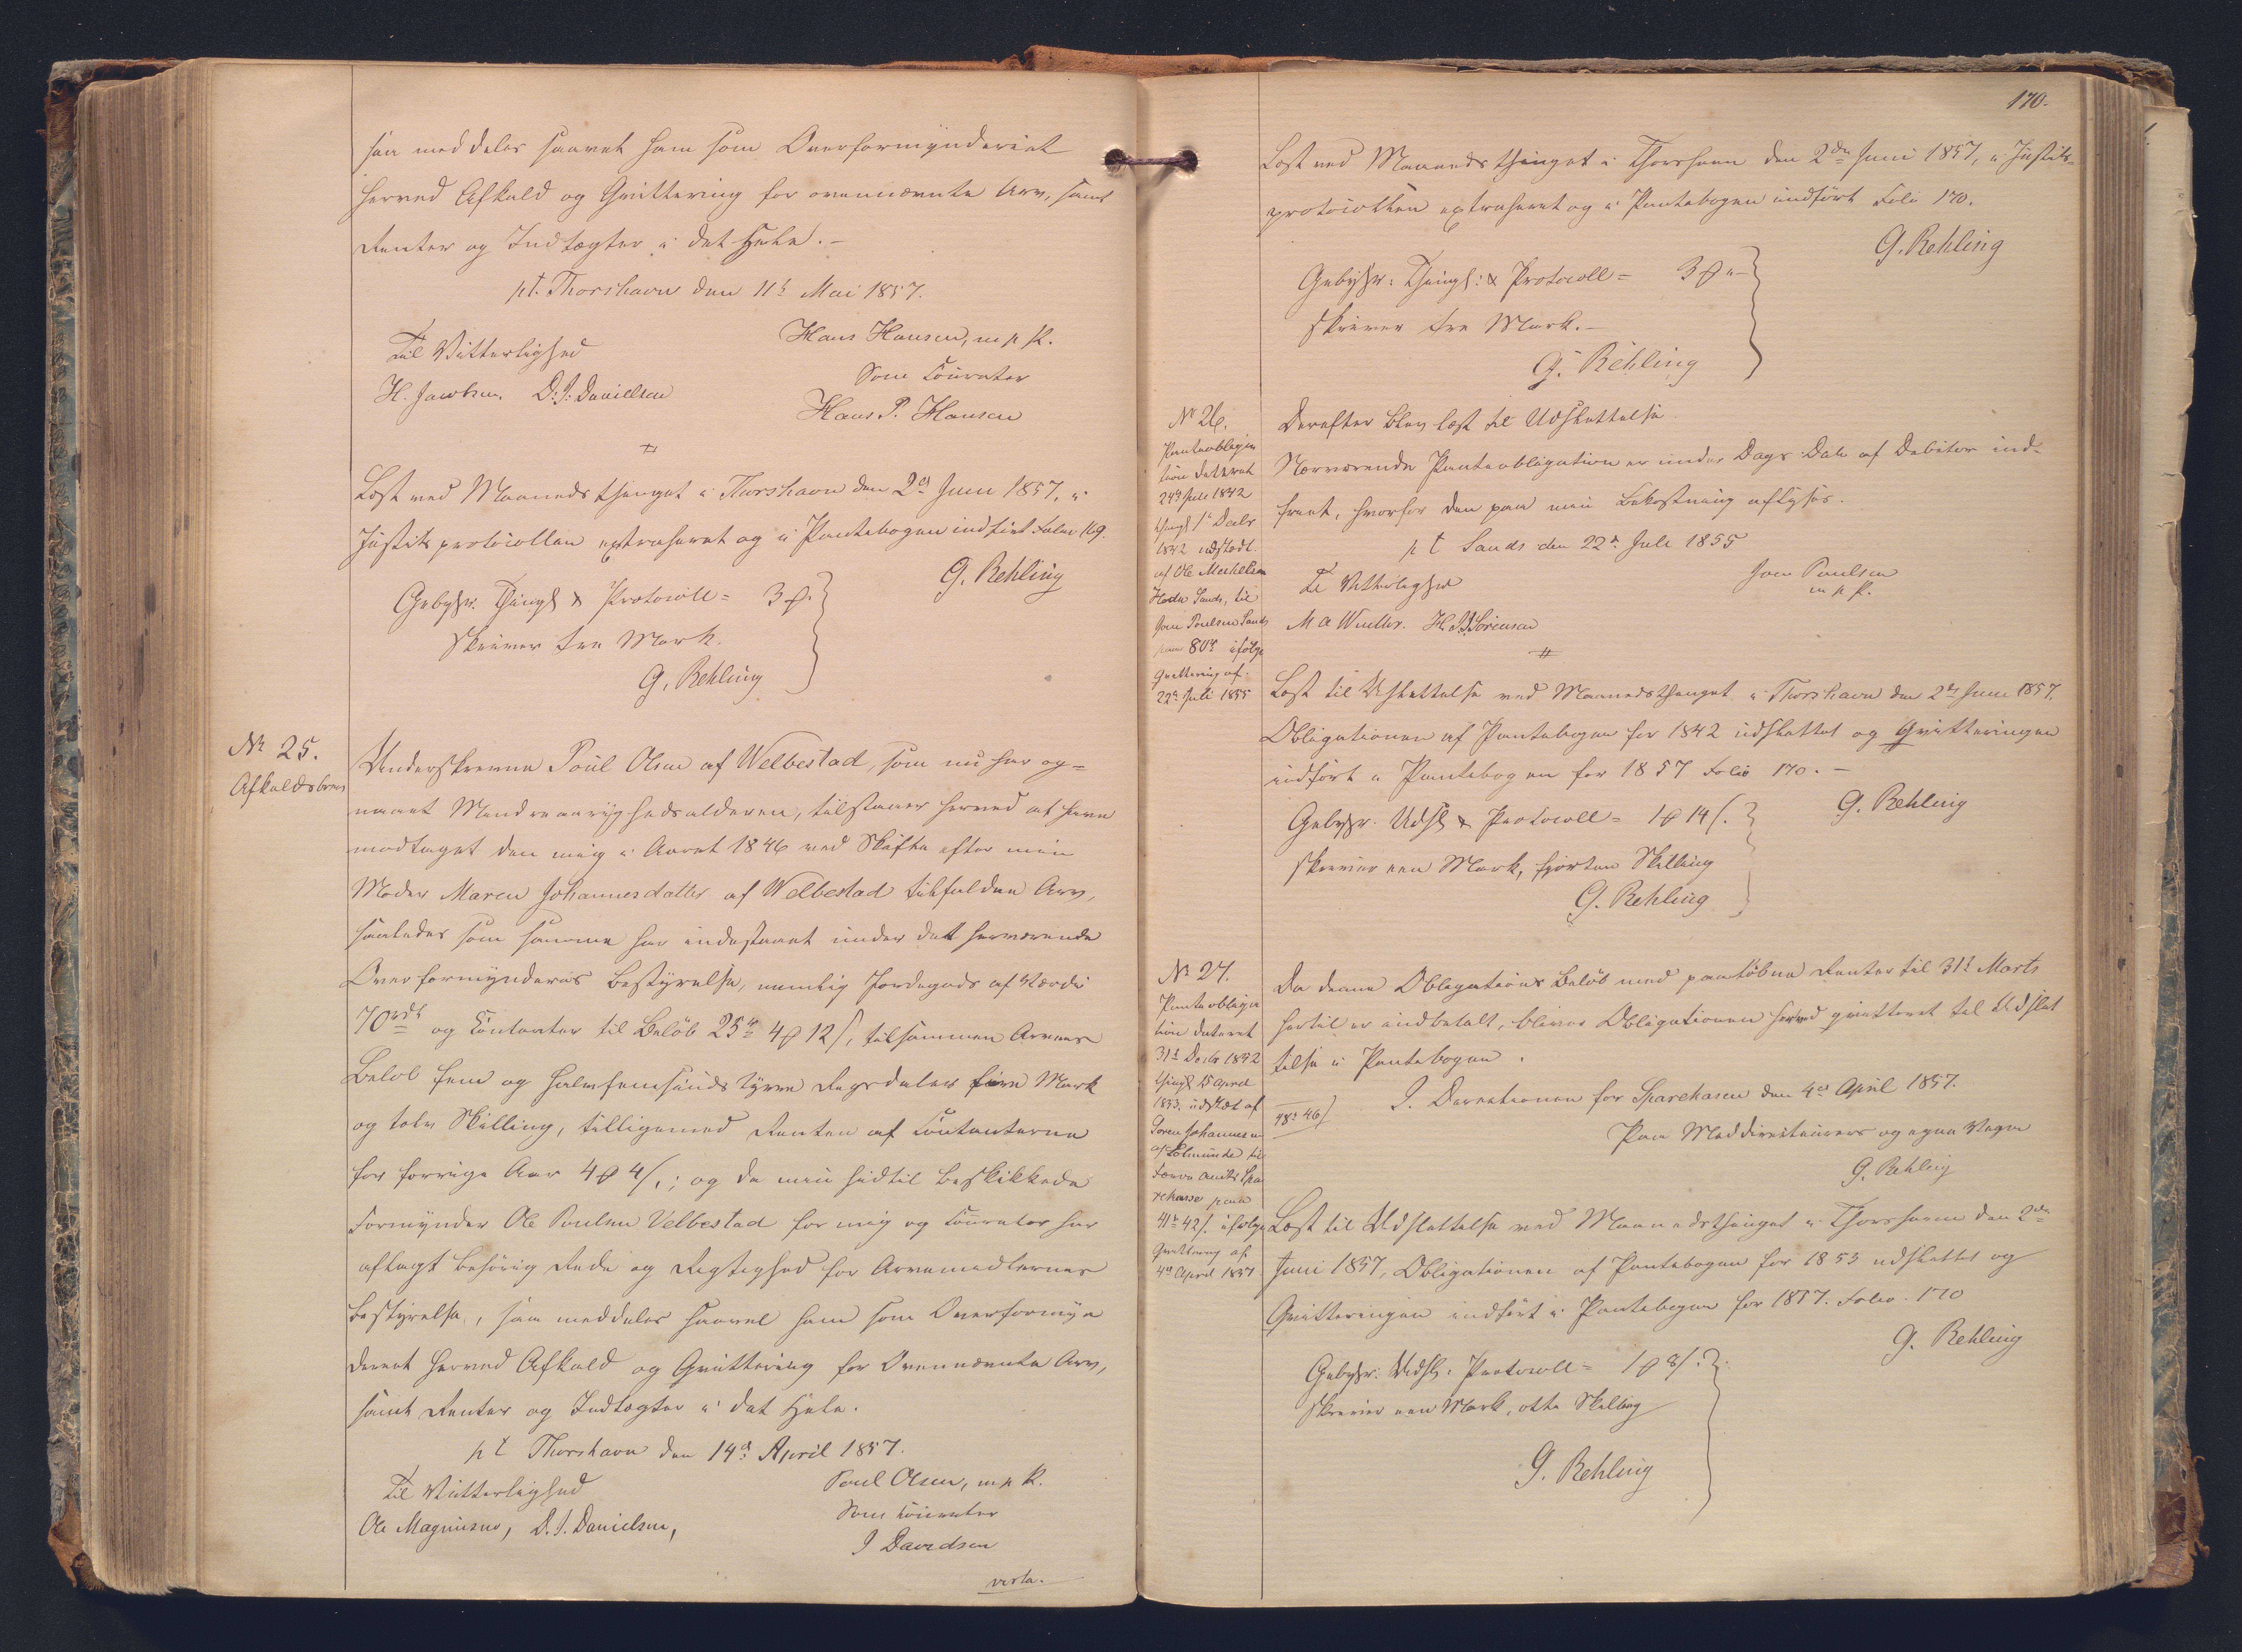 saa meddeles saavel ham som Overformynderiet
herved Afkald og Qvittering for ovennævnte Arv, samt
Renter og Indtægter i det Hele.-
pt. Thorshavn den 11t Mai 1857.
Til Vitterlighed
H. Jacobsen. D: J: Danielsen
Hans Hansen, m p P.
Som Courator
Hans P. Hansen
Læst ved Maanedsthinget i Thorshavn den 2d Juni 1857, i
Justitsprotocollen extraheret og i Pantebogen indført Folio 169.
G. Rehling
Gebyhr. Thingl & Protocoll = 3 ₰.
Skriver tre Mark.
G. Rehling
Nr 25.
Afkaldsbrev
Underskrevne Poul Olsen af Welbestad, som nu har op=
naaet Myndighedsalderen, tilstaaer herved at have
modtaget den mig i Aaret 1846 ved Skifte efter min
Moder Maren Johannesdatter af Welbestad tilfaldne Arv,
saaledes som samme har indestaaet under det herværende
Overformynderies Bestyrelse, nemlig Jordegods af Værdi
70rd og Contanter til Beløb 25rd 4 ₰ 12 /, tilsammen Arvens
Beløb fem og halvfemsindstyve Rigsdaler fire Mark
og tolv Skilling, tilligemed Renten af Contanterne
for forrige Aar 4 ₰ 4 /.; og da min hidtil beskikkede
Formynder Ole Poulsen Velbestad for mig og Courator har
aflagt behørig Rede og Rigtighed for Arvemidlernes
Bestyrelse, saa meddeles saavel ham som Overformyn
deriet herved Afkald og Qvittering for Ovennævnte Arv,
samt Renter og Indtægter i det Hele.
pt Thorshavn den 14d April 1857.
Til Vitterlighed
Ole Magnusen, D. J. Danielsen,
Poul Olsen, m p P.
Som Courator
J Davidsen
verta.
170.
Læst ved Maanedsthinget i Thorshavn den 2den Juni 1857, i Justits=
protocollen extraheret og i Pantebogen indført Folio 170.
G. Rehling
Gebyhr: Thingl: & Protocoll = 3 ₰ "
Skriver tre Mark.-
G. Rehling
Nr 26.
Panteobliga
tion dateret
24d Juli 1842
thingl 1t Decbr
1842 udstedt
af Ole Michelsen
Sands, til
Joen Poulsen Sands
paa 80rd ifølge
Qvittering af
22d Juli 1855
Derefter blev læst til Udslettelse
Nærværende Panteobligation er under Dags Dato af Debitor ind-
friet, hvorfor den paa min Bekostning aflyses.
p t Sands den 22d Juli 1855
Til Vitterlighed
M A Winther. H. J. Sørensen
Joen Poulsen
m p P.
Læst til Udslettelse ved Maanedsthinget i Thorshavn den 2d Juni 1857.
Obligationen af Pantebogen for 1842 udslettet og Qvitteringen
indført i Pantebogen for 1857 Folio 170.-
G. Rehling
Gebyhr. Udsl & Protocoll = 1 ₰ 14 /.
Skriver een Mark, fjorten Skilling
G. Rehling
Nr 27.
Panteobliga
tion dateret
31t Decbr 1852
thingl 15 April
1853, udstedt af
Soren Johannesen
til
Færø Amts Spa
rekasse paa
41rd 42 /. ifølge
Qvittering af
4d April 1857
48rd 46 /
Da denne Obligations Beløb med paaløbne Renter til 31t Marts
hertil er indbetalt, bliver Obligationen herved qvitteret til Udslet
telse i Pantebogen.
I Directionen for Sparekassen den 4d April 1857.
Paa Meddirecteurers og egne Vegne
G. Rehling
Læst til Udslettelse ved Maanedsthinget i Thorshavn den 2den
Juni 1857, Obligationen af Pantebogen for 1853 udslettet og
Qvitteringen indført i Pantebogen for 1857. Folio. 170
G. Rehling
Gebyhr: Udsl: Protocoll = 1 ₰ 8 /.
Skriver een Mark, otte Skilling
G. Rehling